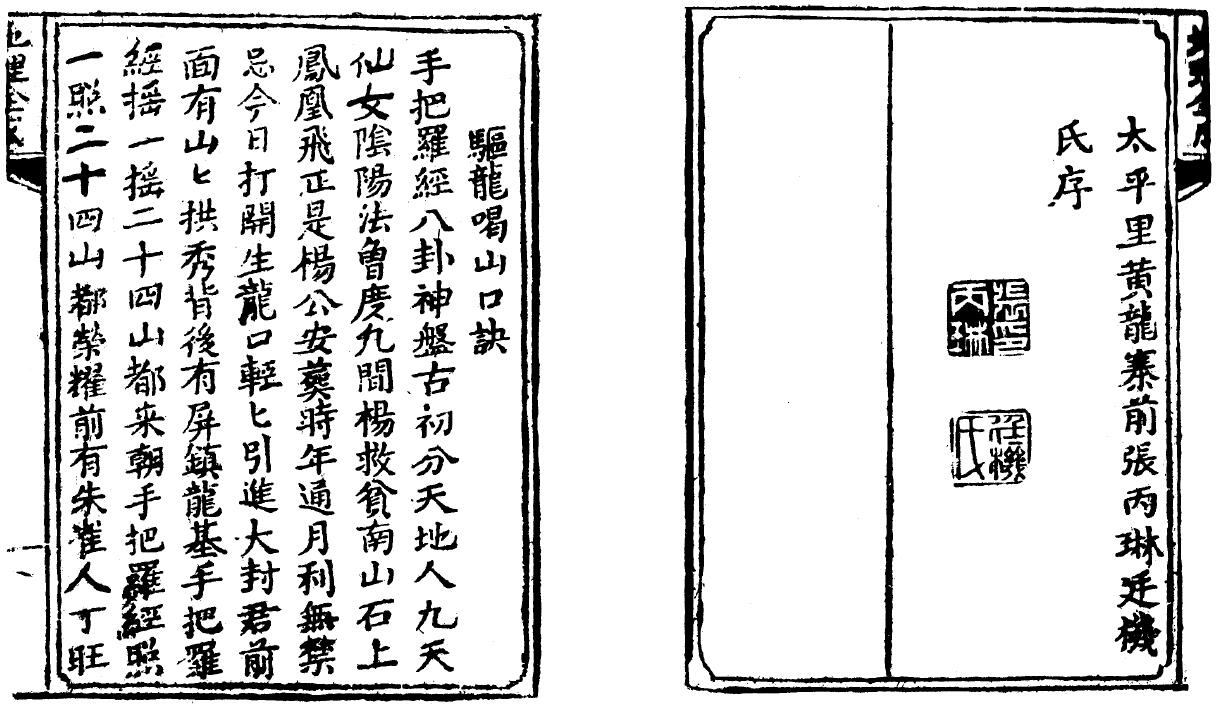 太平里黄龍寨前張丙琳廷機
氏序
張印
丙琳
廷機
氏
驅龍喝山口訣
手把羅經八卦神盤古初分天地人九天
仙女陰陽法曾度九間楊救貧南山石上
鳳凰飛正是楊公安葬時年通月利無禁
忌今日打開生龍口輕匕引進大封君前
面有山匕拱秀背後有屏鎮龍基手把羅
經摇一摇二十四山都来朝手把羅經照
一照二十四山都榮耀前有朱雀人丁旺